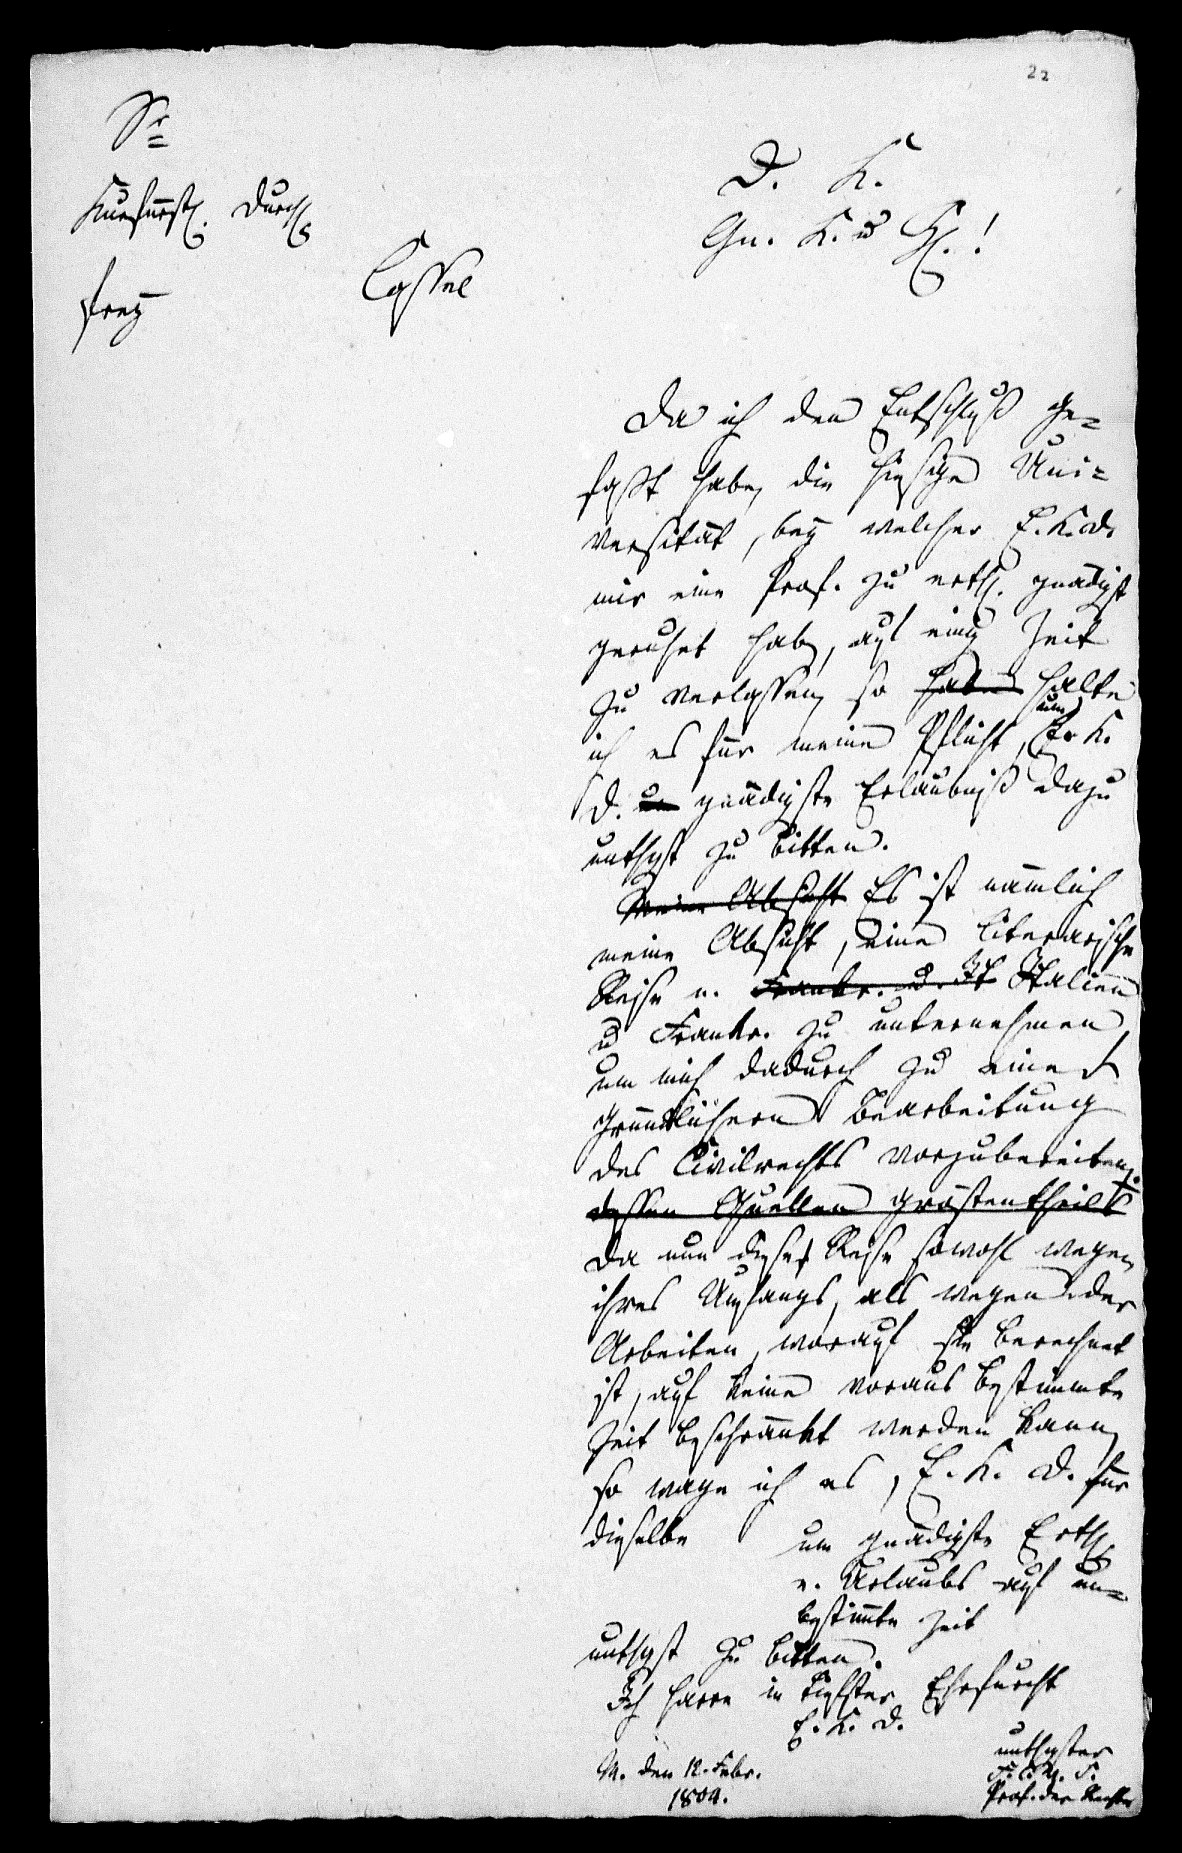 22
Sr
Kurfürstl. Durchl.
Cassel
frey
D. K.
Gn. K. u H.!
Da ich den Entschluß ge=
faßt habe, die hiesige Uni=
versität, bey welcher E. K. D.
mir eine Prof. zu erth. gnädigst
geruhet haben, auf einige Zeit
zu verlassen, so habe halte
ich es für meine Pflicht, um Er K.
D. um gnädigste Erlaubniß dazu
unthgst zu bitten.
Meine Absicht Es ist nämlich
meine Absicht, eine literarische
Reise n. Frankr. u. It Italien
u Frankr. zu unternehmen,
um mich dadurch zu einer
gründlichern Bearbeitung
des Civilrechts vorzubereiten.
dessen Quellen größtentheils
Da nun diese Reise sowohl wegen
ihres Umfangs, als wegen der
Arbeiten, worauf sie berechnet
ist, auf keine voraus bestimmte
Zeit beschränkt werden kann,
so wage ich es, E. K. D. für
dieselbe um gnädigste Erth.
e. Urlaubs auf un=
bestimmte Zeit
unthgst zu bitten.
Ich harre in tiefster Ehrfurcht
E. K. D.
unthgster
M. den 12. Febr.
1804.
Prof. der Rechte